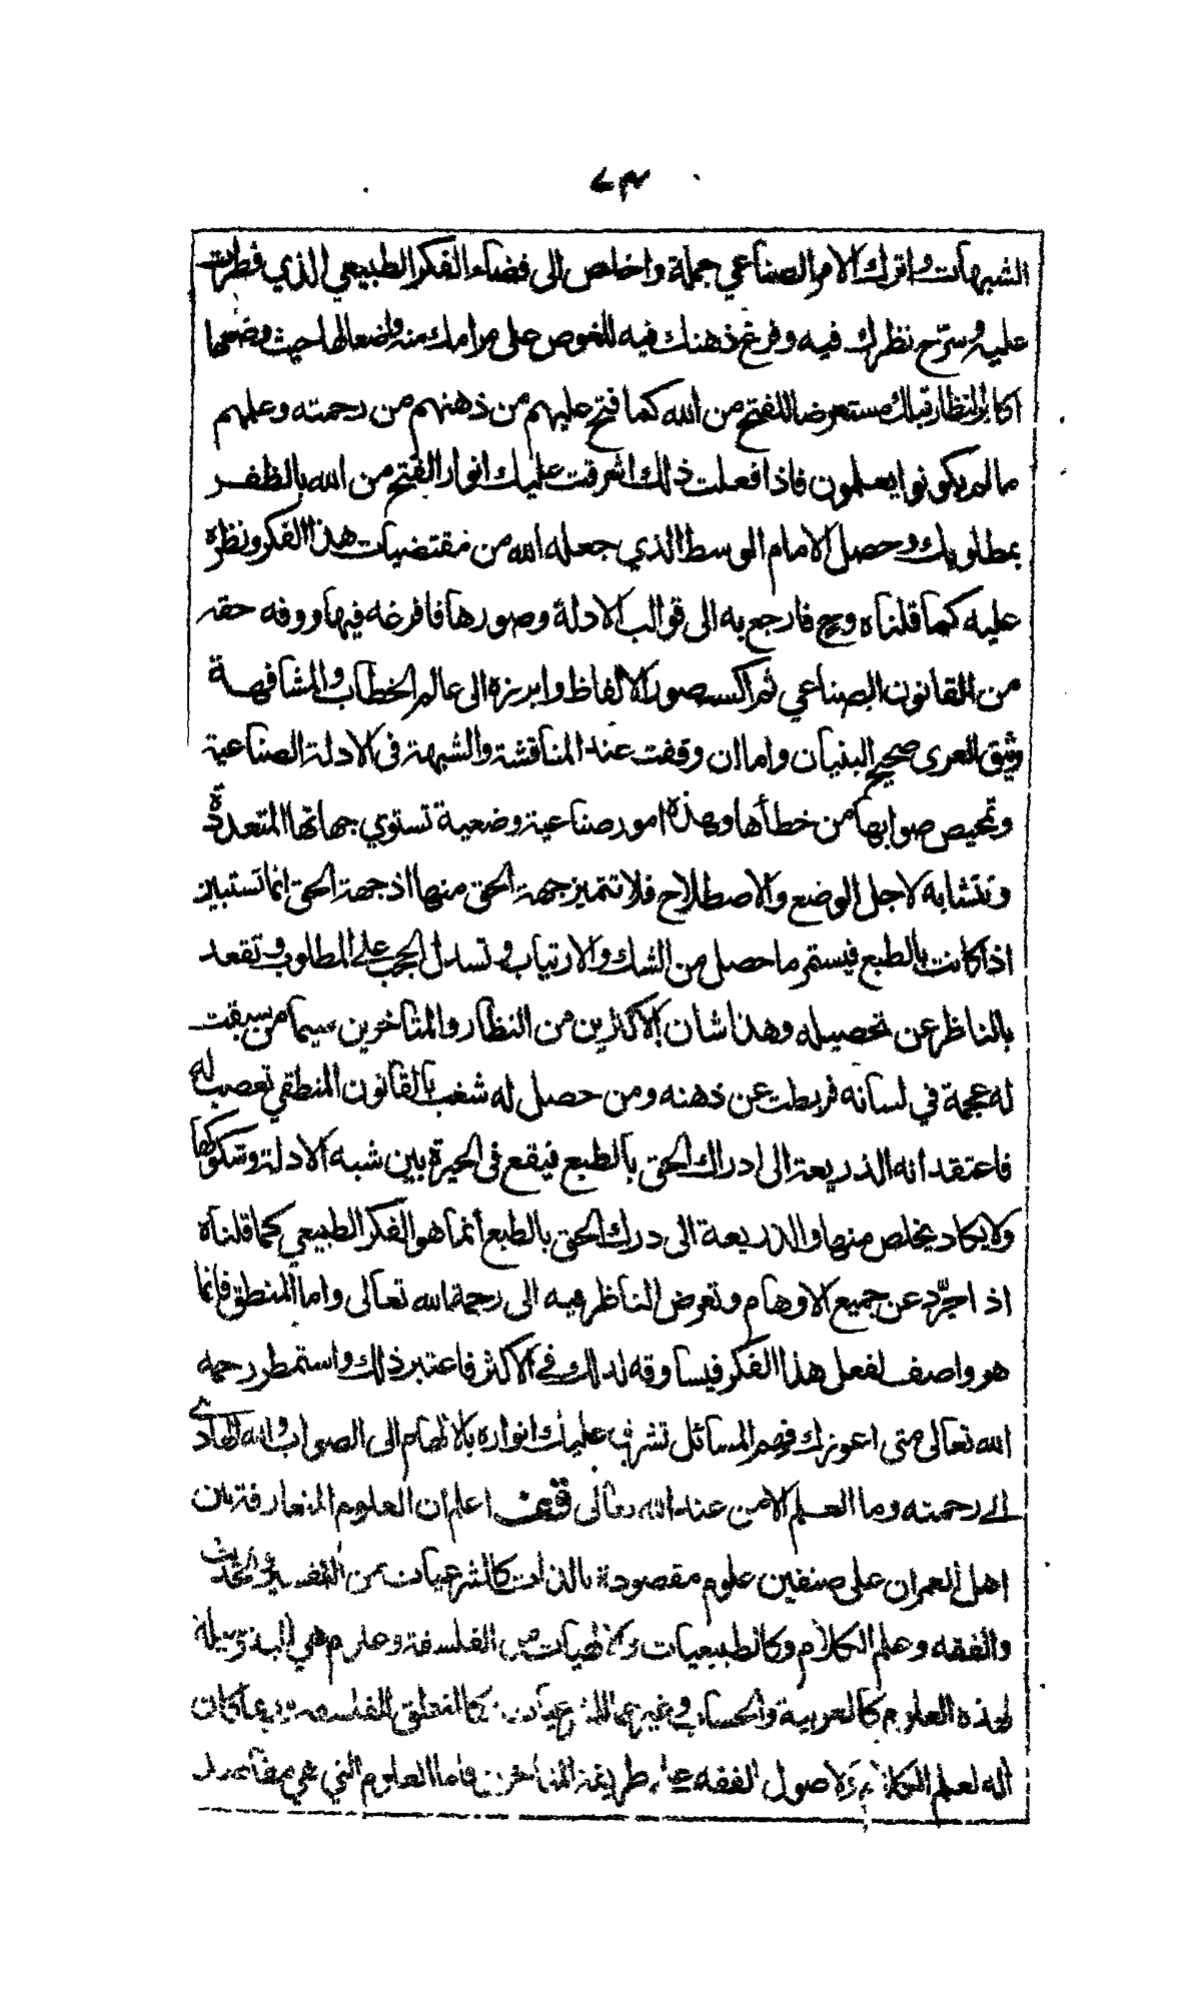 ٧٣
الشبهات واترك الامر الصناعي جملة واخلص الى فضاء الفكر الطبيعي الذي فطرت
عليه وسرّح نظرك فيه وفرغ ذهنك فيه للغوص على مرامك منه واضعا لها حيث وضعها
اكابر النظار قبلك مستعرضا للفتح من الله كما فتح عليهم من ذهنهم من رحمته وعلمهم
ما لم يكونوا يعلمون فاذا فعلت ذلك اشرقت عليك انوار الفتح من الله بالظفر
بمطلوبك وحصل الامام الوسط الذي جعله الله من مقتضيات هذا الفكر ونظره
عليه كما قلناه وح فارجع به الى قوالب الادلة وصورها فافرغه فيها ووفه حقه
من القانون الصناعي ثم اكسه صور الالفاظ وابرزه الى عالم الخطاب والمشافهة
وثيق العرى صحيح البنيان واما ان وقفت عند المناقشة والشبهة في الادلة الصناعية
وتمحيص صوابها من خطأها وهذه امور صناعية وضعية تستوي جهاتها المتعددة
وتتشابه لاجل الوضع والاصطلاح فلا تتميز جهة الحق منها اذ جهة الحق انما تستبين
اذا كانت بالطبع فيستمر ما حصل من الشك والارتياب وتسدل الحجب على المطلوب وتقعد
بالناظر عن تحصيله وهذا شان الاكثرين من النظار والمتاخرين سيما من سبقت
له عجمة في لسانه فربطت عن ذهنه ومن حصل له شغب بالقانون المنطقي تعصب له
فاعتقد انه الذريعة الى ادراك الحق بالطبع فيقع في الحيرة بين شبه الادلة وشكوكها
ولا يكاد يخلص منها والذريعة الى درك الحق بالطبع أنما هو الفكر الطبيعي كما قلناه
اذ اجرّد عن جميع الاوهام وتعرض الناظر فيه الى رحمة الله تعالى واما المنطق فانما
هو واصف لفعل هذا الفكر فيساوقه لذلك في الاكثر فاعتبر ذلك واستمطر رحمه
الله تعالى متى اعوزك فهم المسائل تشرق عليك انواره بالالهام الى الصواب والله الهادى
الى رحمته وما العلم الا من عند الله تعالى قف اعلم ان العلوم المتعارفة بين
اهل العمران على صنفين علوم مقصودة بالذات كالشرعيات من التفسير والحديث
والفقه وعلم الكلام وكالطبيعيات والالهيات من الفلسفة وعلوم هي الية وسيلة
لهذه العلوم كالعربية والحساب وغيرهما للشرعيات كالمنطق للفلسفة وربما كان
اله لعلم الكلام ولاصول الفقه على طريقة المتاخرين فاما العلوم التي هي مقاصد